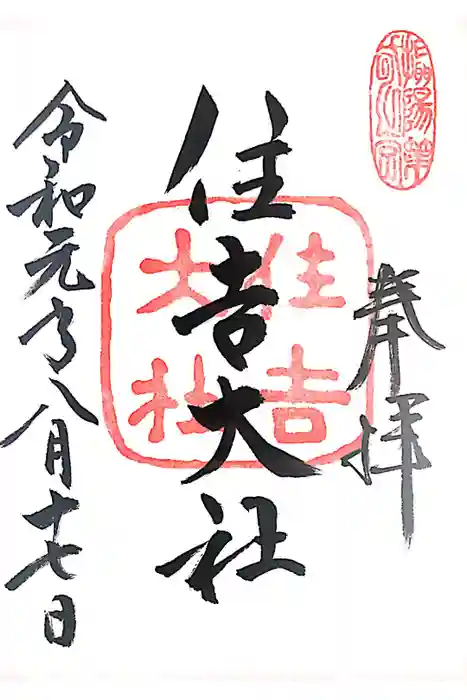 奉拝
住吉大社
住吉
大社
令和元年八月十七日